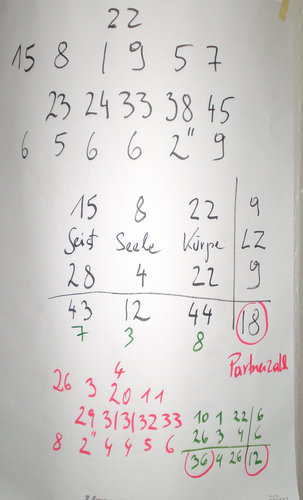 22
15 8 1 9 5 7
23 24 33 38 45
6 5 6 6 2" 9
15 8 22 9
Geist Seele Körper LZ
28 4 22 9
43 12 44 18
7 3 8
Partnerzahl
4
26 3 20 11
29 31 31 32 33
8 2" 4 4 5 6
10 1 22 6
26 3 4 6
36 4 26 12